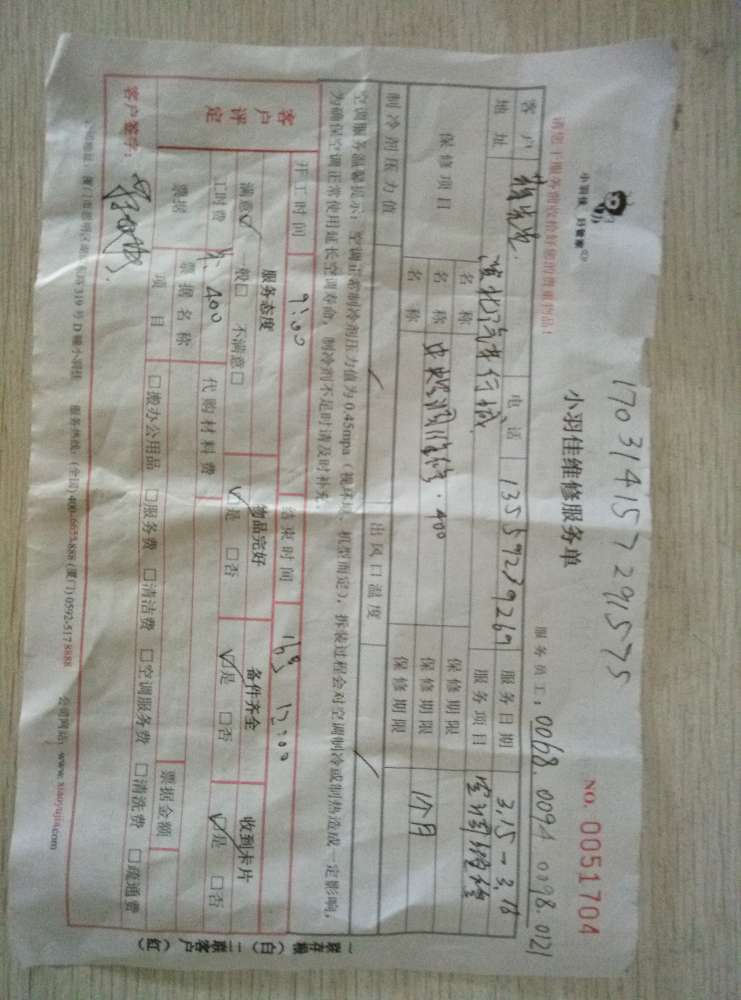 170314157291575
NO. 0051704
小羽佳 好管家
小羽佳维修服务单
服务员工：0068.0094 0098.0121
请您于服务前收拾好您的贵重物品！
客户
电话 13559239269 服务日期 3.15-3.16
地址 服务项目
保修项目 名称 保修期限
名称 保修期限 1个月
名称 保修期限
制冷剂压力值 出风口温度
空调服务温馨提示：空调正常制冷剂压力值为0.45mpa（视环境、机型而定），拆装过程会对空调制冷或制热造成一定影响，
为确保空调正常使用延长空调寿命，制冷剂不足时请及时补充。
开工时间 9:00 结束时间 16号 12:00
客户评定 服务态度 物品完好 备件齐全 收到卡片
满意☑ 一般□ 不满意□ ☑是 □否 ☑是 □否 ☑是 □否
工时费 400 代购材料费
票据 票据名称 票据金额
项目 □搬办公用品 □服务费 □清洁费 □空调服务费 □清洗费 □疏通费
客户签字：
服务热线：(全国) 400-6655-888 (厦门) 0592-5178888 公司网站：www.xiaoyujia.com
一联存根（白） 二联客户（红）